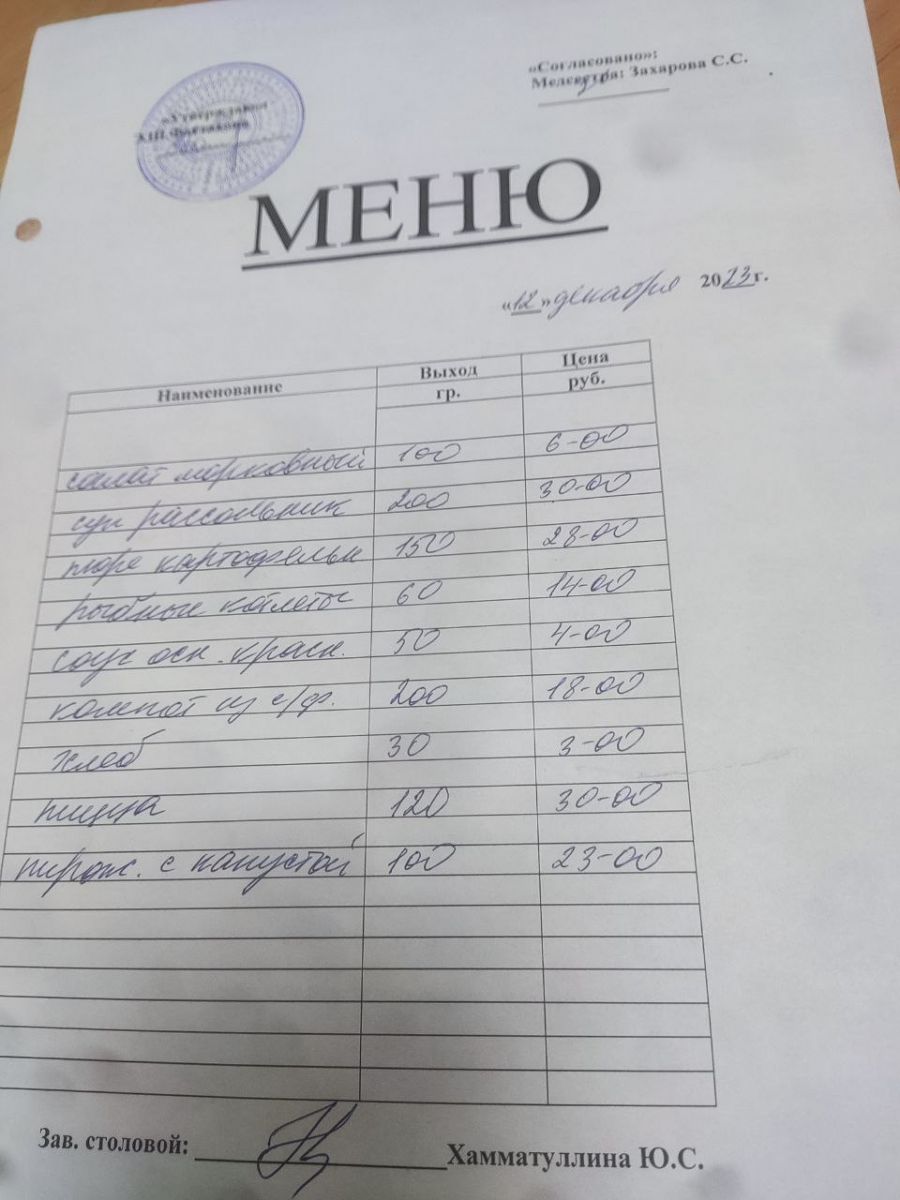 «Утверждаю»
«Согласовано»:
Медсестра: Захарова С.С.
МЕНЮ
«12» декабря 2023 г.
Наименование Выход гр. Цена руб.
салат морковный 100 6-00
суп рассольник 200 30-00
пюре картофельн 150 28-00
рыбные котлеты 60 14-00
соус осн. красн. 50 4-00
компот из с/ф. 200 18-00
хлеб 30 3-00
пицца 120 30-00
пирож. с капустой 100 23-00
Зав. столовой: Хамматуллина Ю.С.